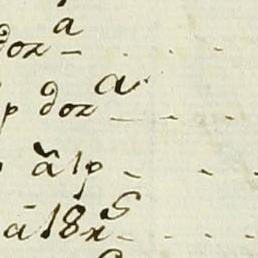 doz^a - . . .
p doz^a - - -
ã 1p - - -
ā 18x^s - - -